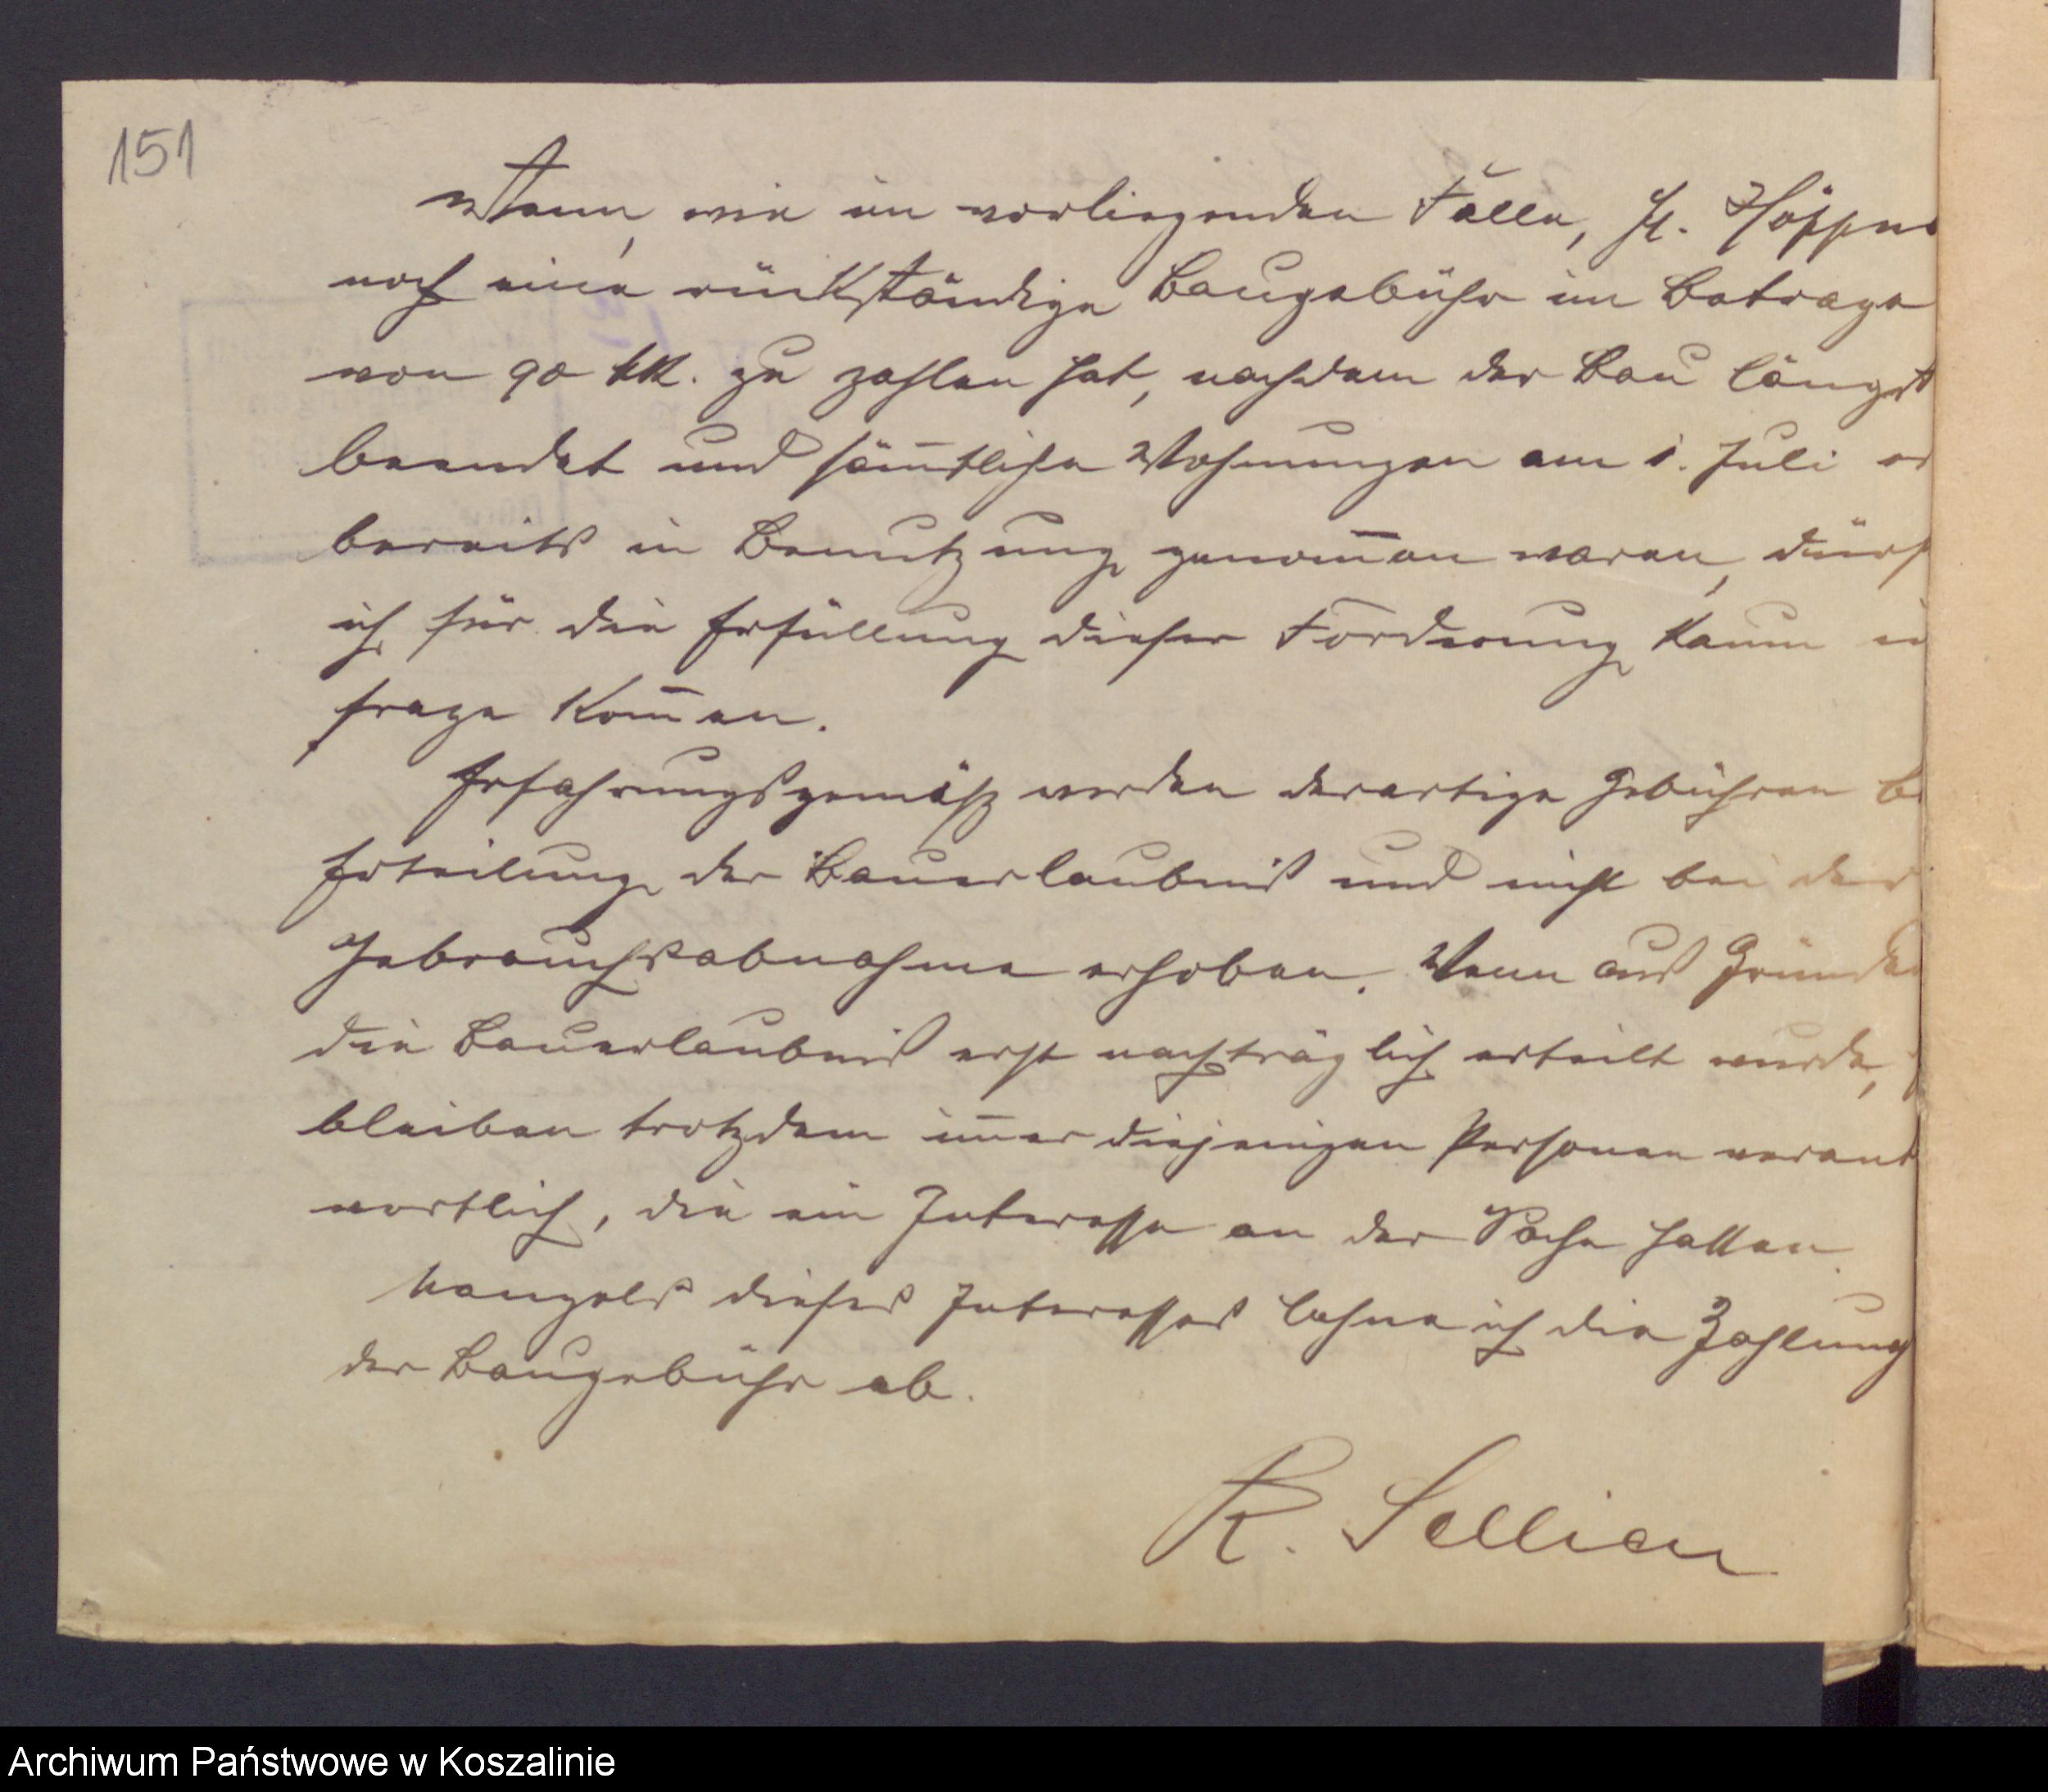 151
Wenn, wie im vorliegenden Falle, H. Höppne
noch eine rückständige Baugebühr im Betrage
von 90 M. zu zahlen hat, nachdem der Bau längst
beendet und säm̅tliche Wohnungen am 1. Juli
bereits in Benutzung genom̅en waren, dürf
ich für die Erfüllung dieser Forderung kaum in
frage kom̅en.
Erfahrungsgemäß werden derartige Gebühren b
Erteilung der Bauerlaubnis und nicht bei der
Gebrauchsabnahme erhoben. Wenn aus Gründen
die Bauerlaubnis erst nachträglich erteilt wurde,
bleiben trotzdem im̅er diejenigen Personen verant
wortlich, die ein Interesse an der Sache hatten.
Mangels dieses Interesses lehne ich die Zahlung
der Baugebühr ab.
R. Sellien
Archiwum Państwowe w Koszalinie